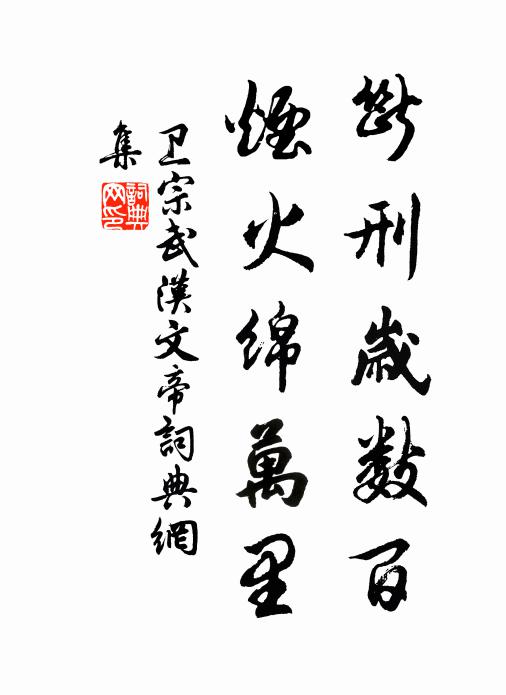 斷刑歲数百
煙火綿萬里
卫宗武漢文帝詞典網
集
詞典网印